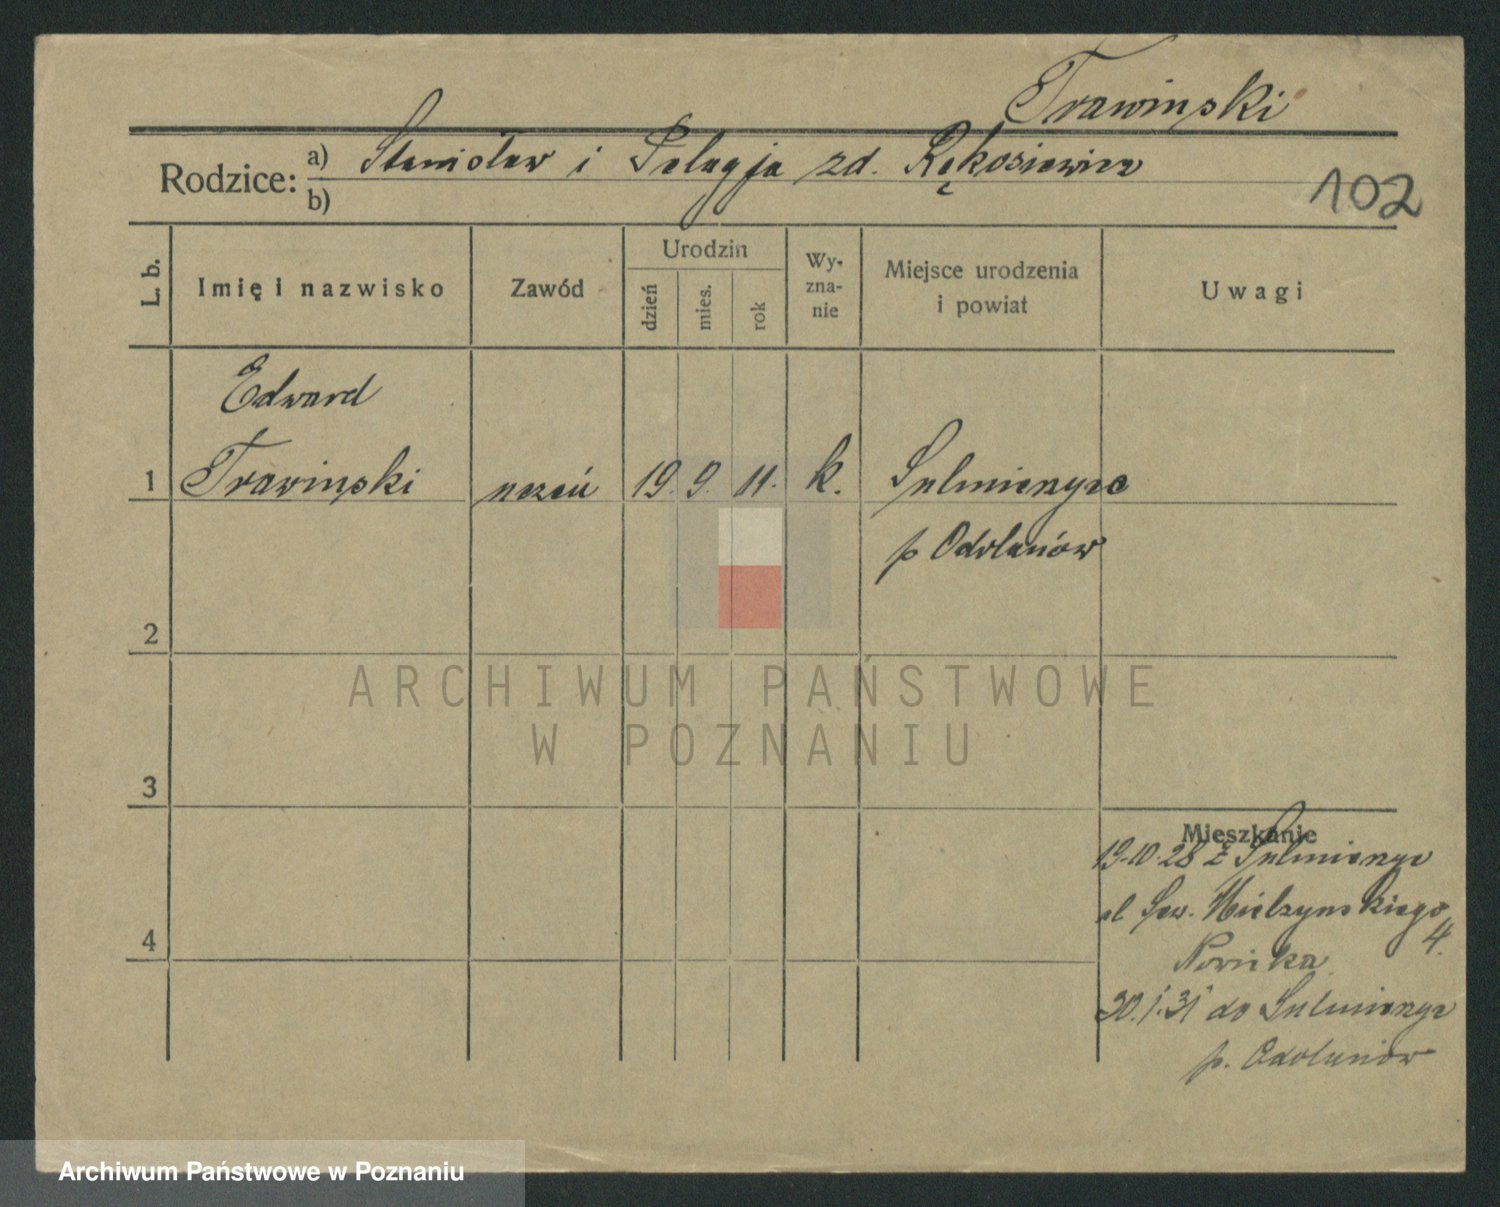 Trawinski
Rodzice: a) Stanisław i Pelagja zd. Rękosiewicz
b)
102
L. b.
Imię i nazwisko
Zawód
Urodzin
dzień
mies.
rok
Wy-
zna-
nie
Miejsce urodzenia
i powiat
Uwagi
Edward
1 Trawinski uczeń 19. 9. 11. k. Sulmierzyce
p Odolanów
2
ARCHIWUM PAŃSTWOWE
W POZNANIU
3
Mieszkanie
19.10.28 z Sulmierzyc
ul Sew. Mielzynskiego
4.
4
Nowicka
30.1.31 do Sulmierzyc
p. Odolanów
Archiwum Państwowe w Poznaniu